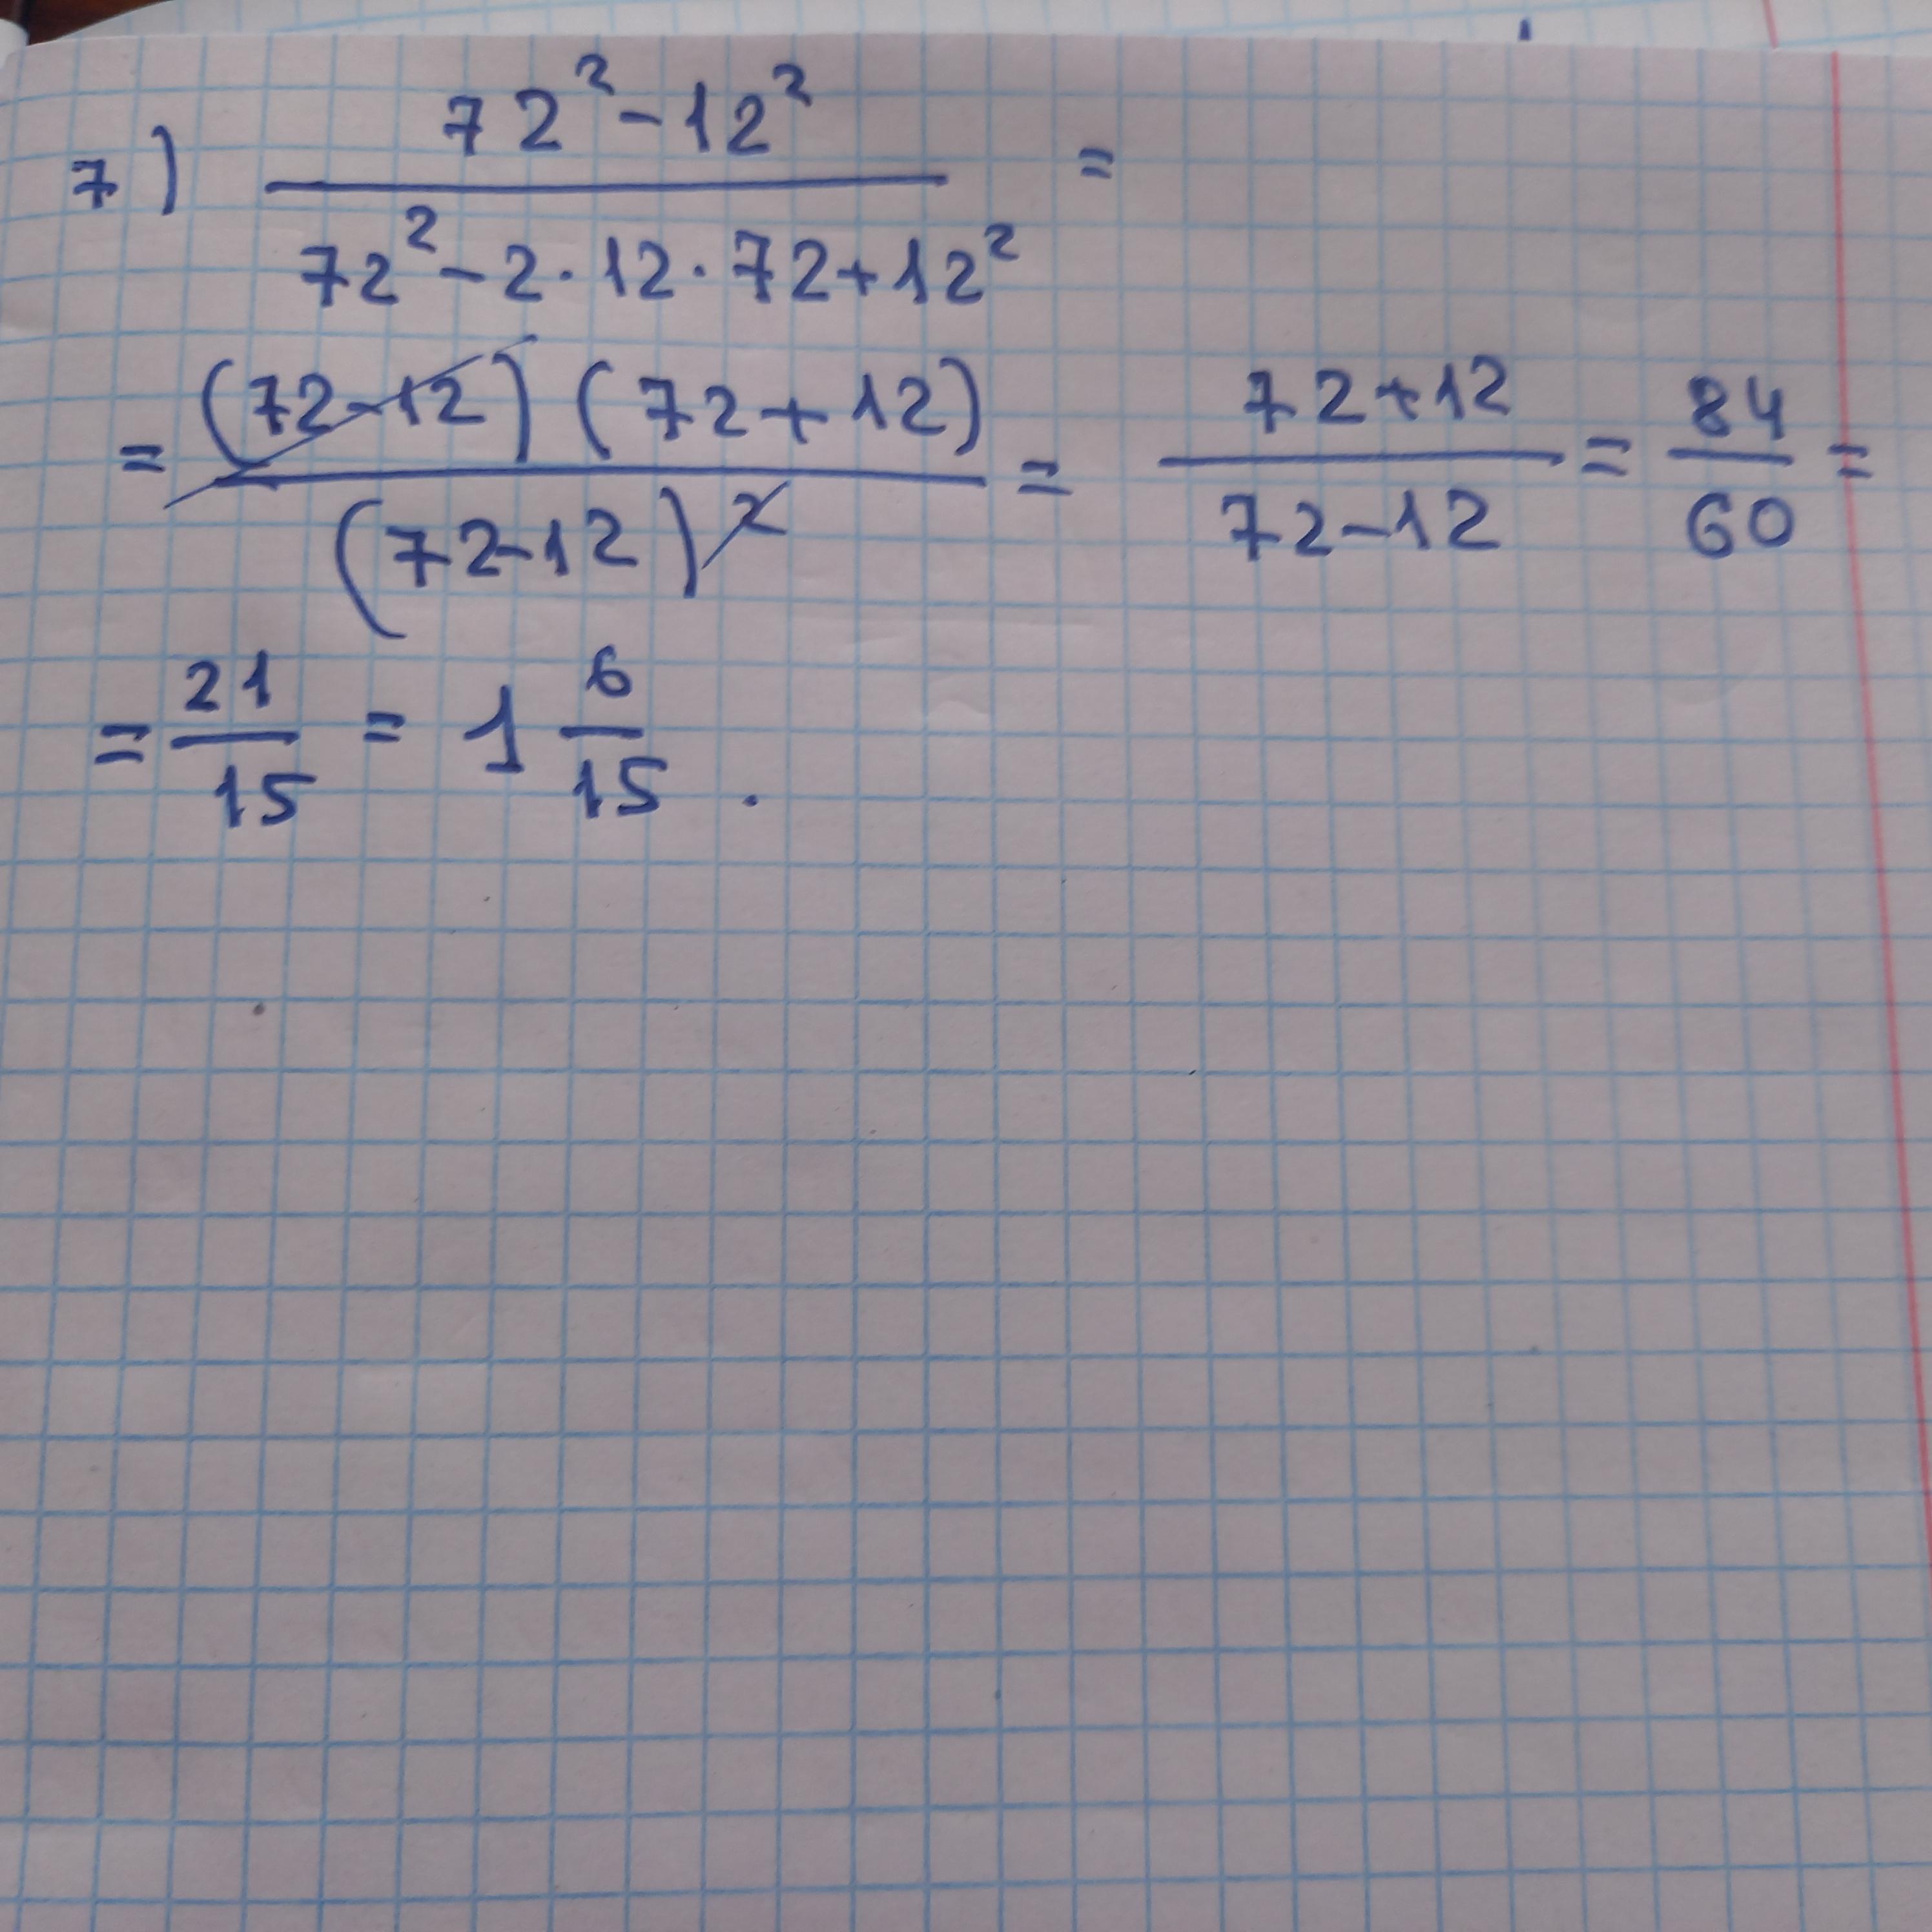 7) (72² - 12²) / (72² - 2 · 12 · 72 + 12²) =
= ((72-12) (72 + 12)) / (72-12)² = (72+12) / (72-12) = 84/60 =
= 21/15 = 1 6/15 .